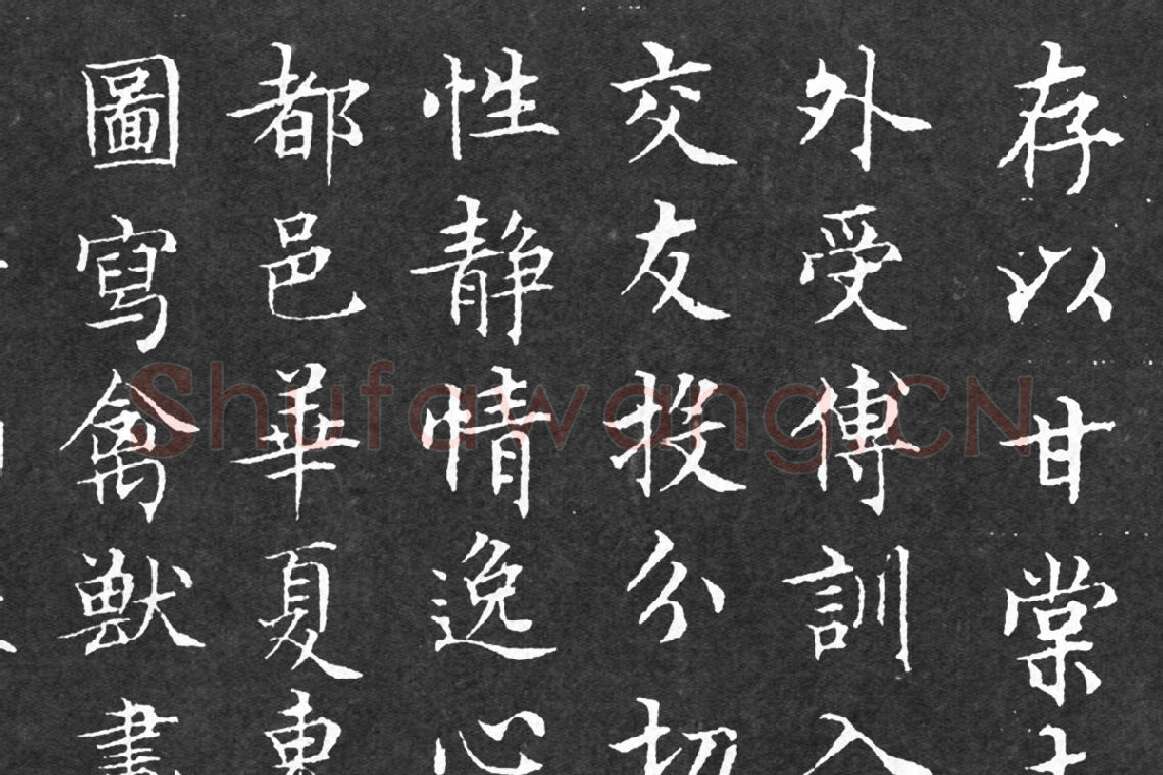 存以甘棠
外受傅訓入
交友投分切
性静情逸心
都邑華夏東
圖寫禽獸畫
Shufawang.CN